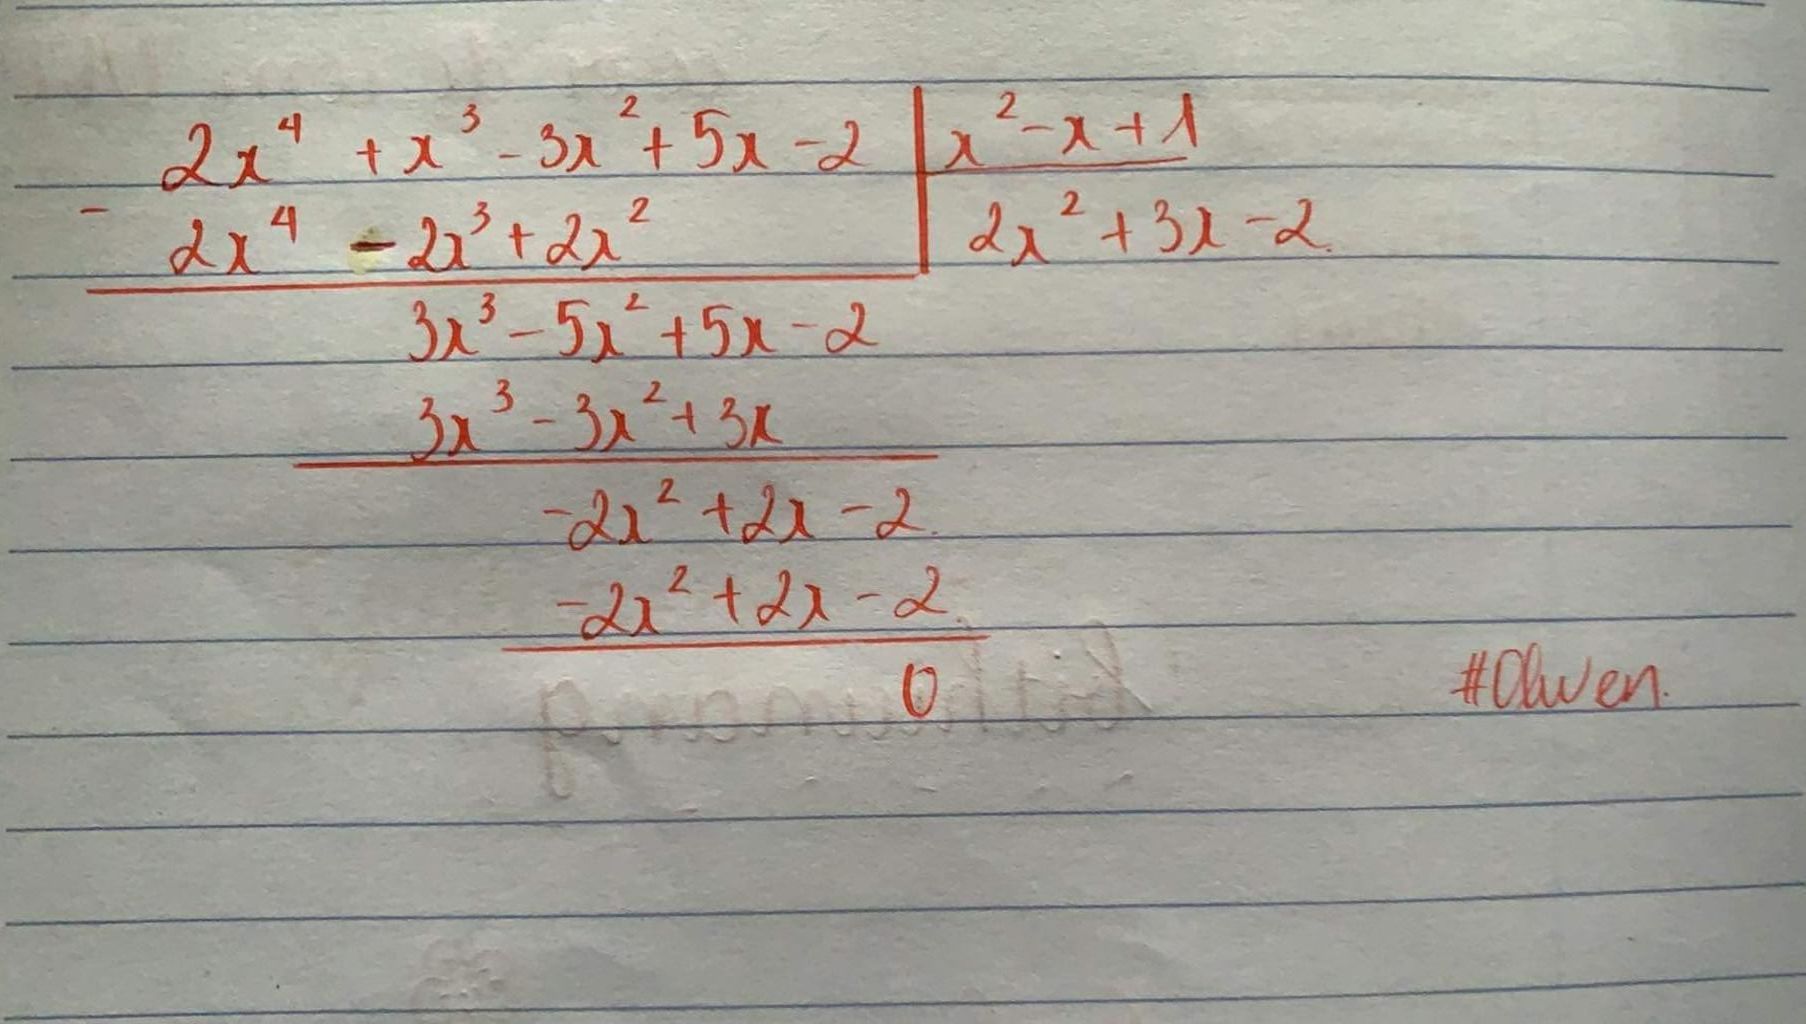 2x⁴ + x³ - 3x² + 5x - 2 | x² - x + 1
- 2x⁴ - 2x³ + 2x² | 2x² + 3x - 2.
3x³ - 5x² + 5x - 2
3x³ - 3x² + 3x
-2x² + 2x - 2.
-2x² + 2x - 2.
0
#Olwen.